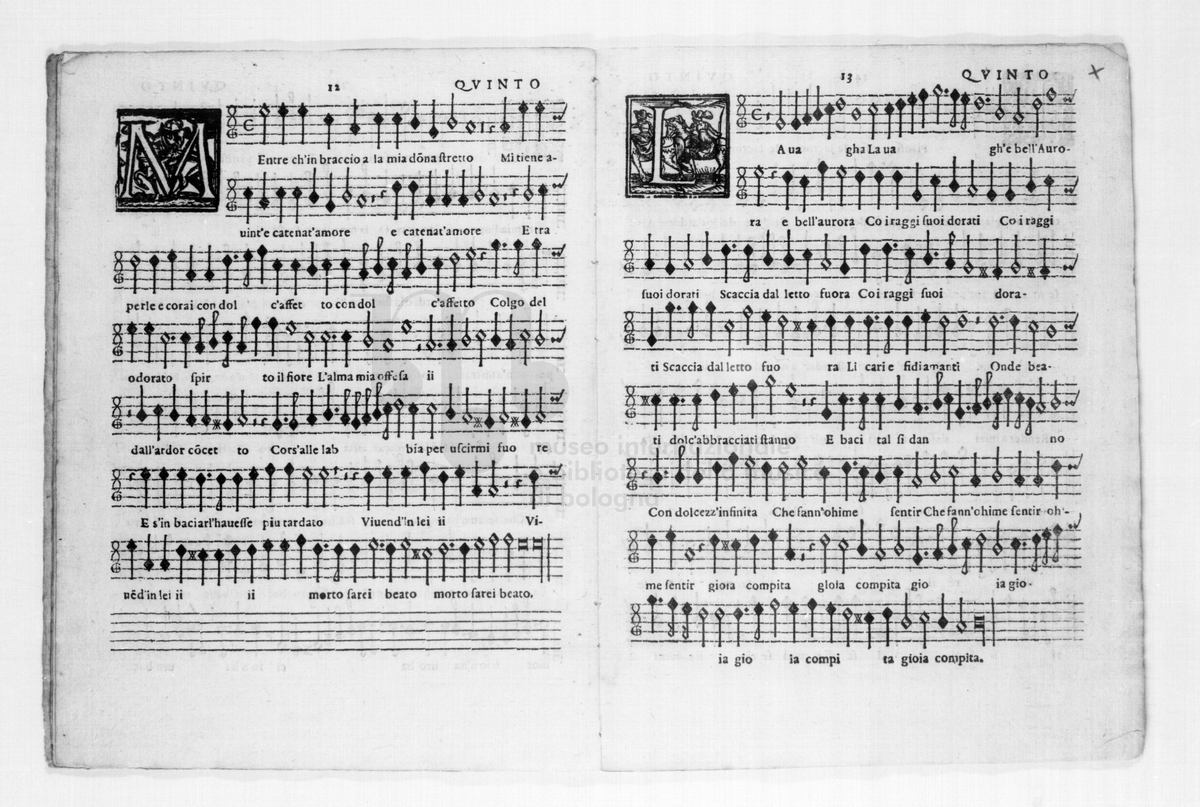 12 QVINTO
M Entre ch'in braccio a la mia dōna stretto Mi tiene a-
uint'e catenat'amore e catenat'amore E tra
perle e corai con dol c'affet to con dol c'affetto Colgo del
odorato spir to il fiore L'alma mia offesa ii
dall'ardor cōcet to Cors'alle lab bia per uscirmi fuo re
E s'in baciarl'hauesse piu tardato Viuend'in lei ii Vi-
uēd'in lei ii ii morto sarei beato morto sarei beato.
13 QVINTO
L A ua gha La ua gh'e bell'Auro-
ra e bell'aurora Co i raggi suoi dorati Co i raggi
suoi dorati Scaccia dal letto fuora Co i raggi suoi dora-
ti Scaccia dal letto fuo ra Li cari e fidiamanti Onde bea-
ti dolc'abbracciati stanno E baci tal si dan no
Con dolcezz'infinita Che fann'ohime sentir Che fann'ohime sentir oh-
me sentir gioia compita gioia compita gio ia gio-
ia gio ia compi ta gioia compita.
museo internazionale
e biblioteca della musica
di bologna